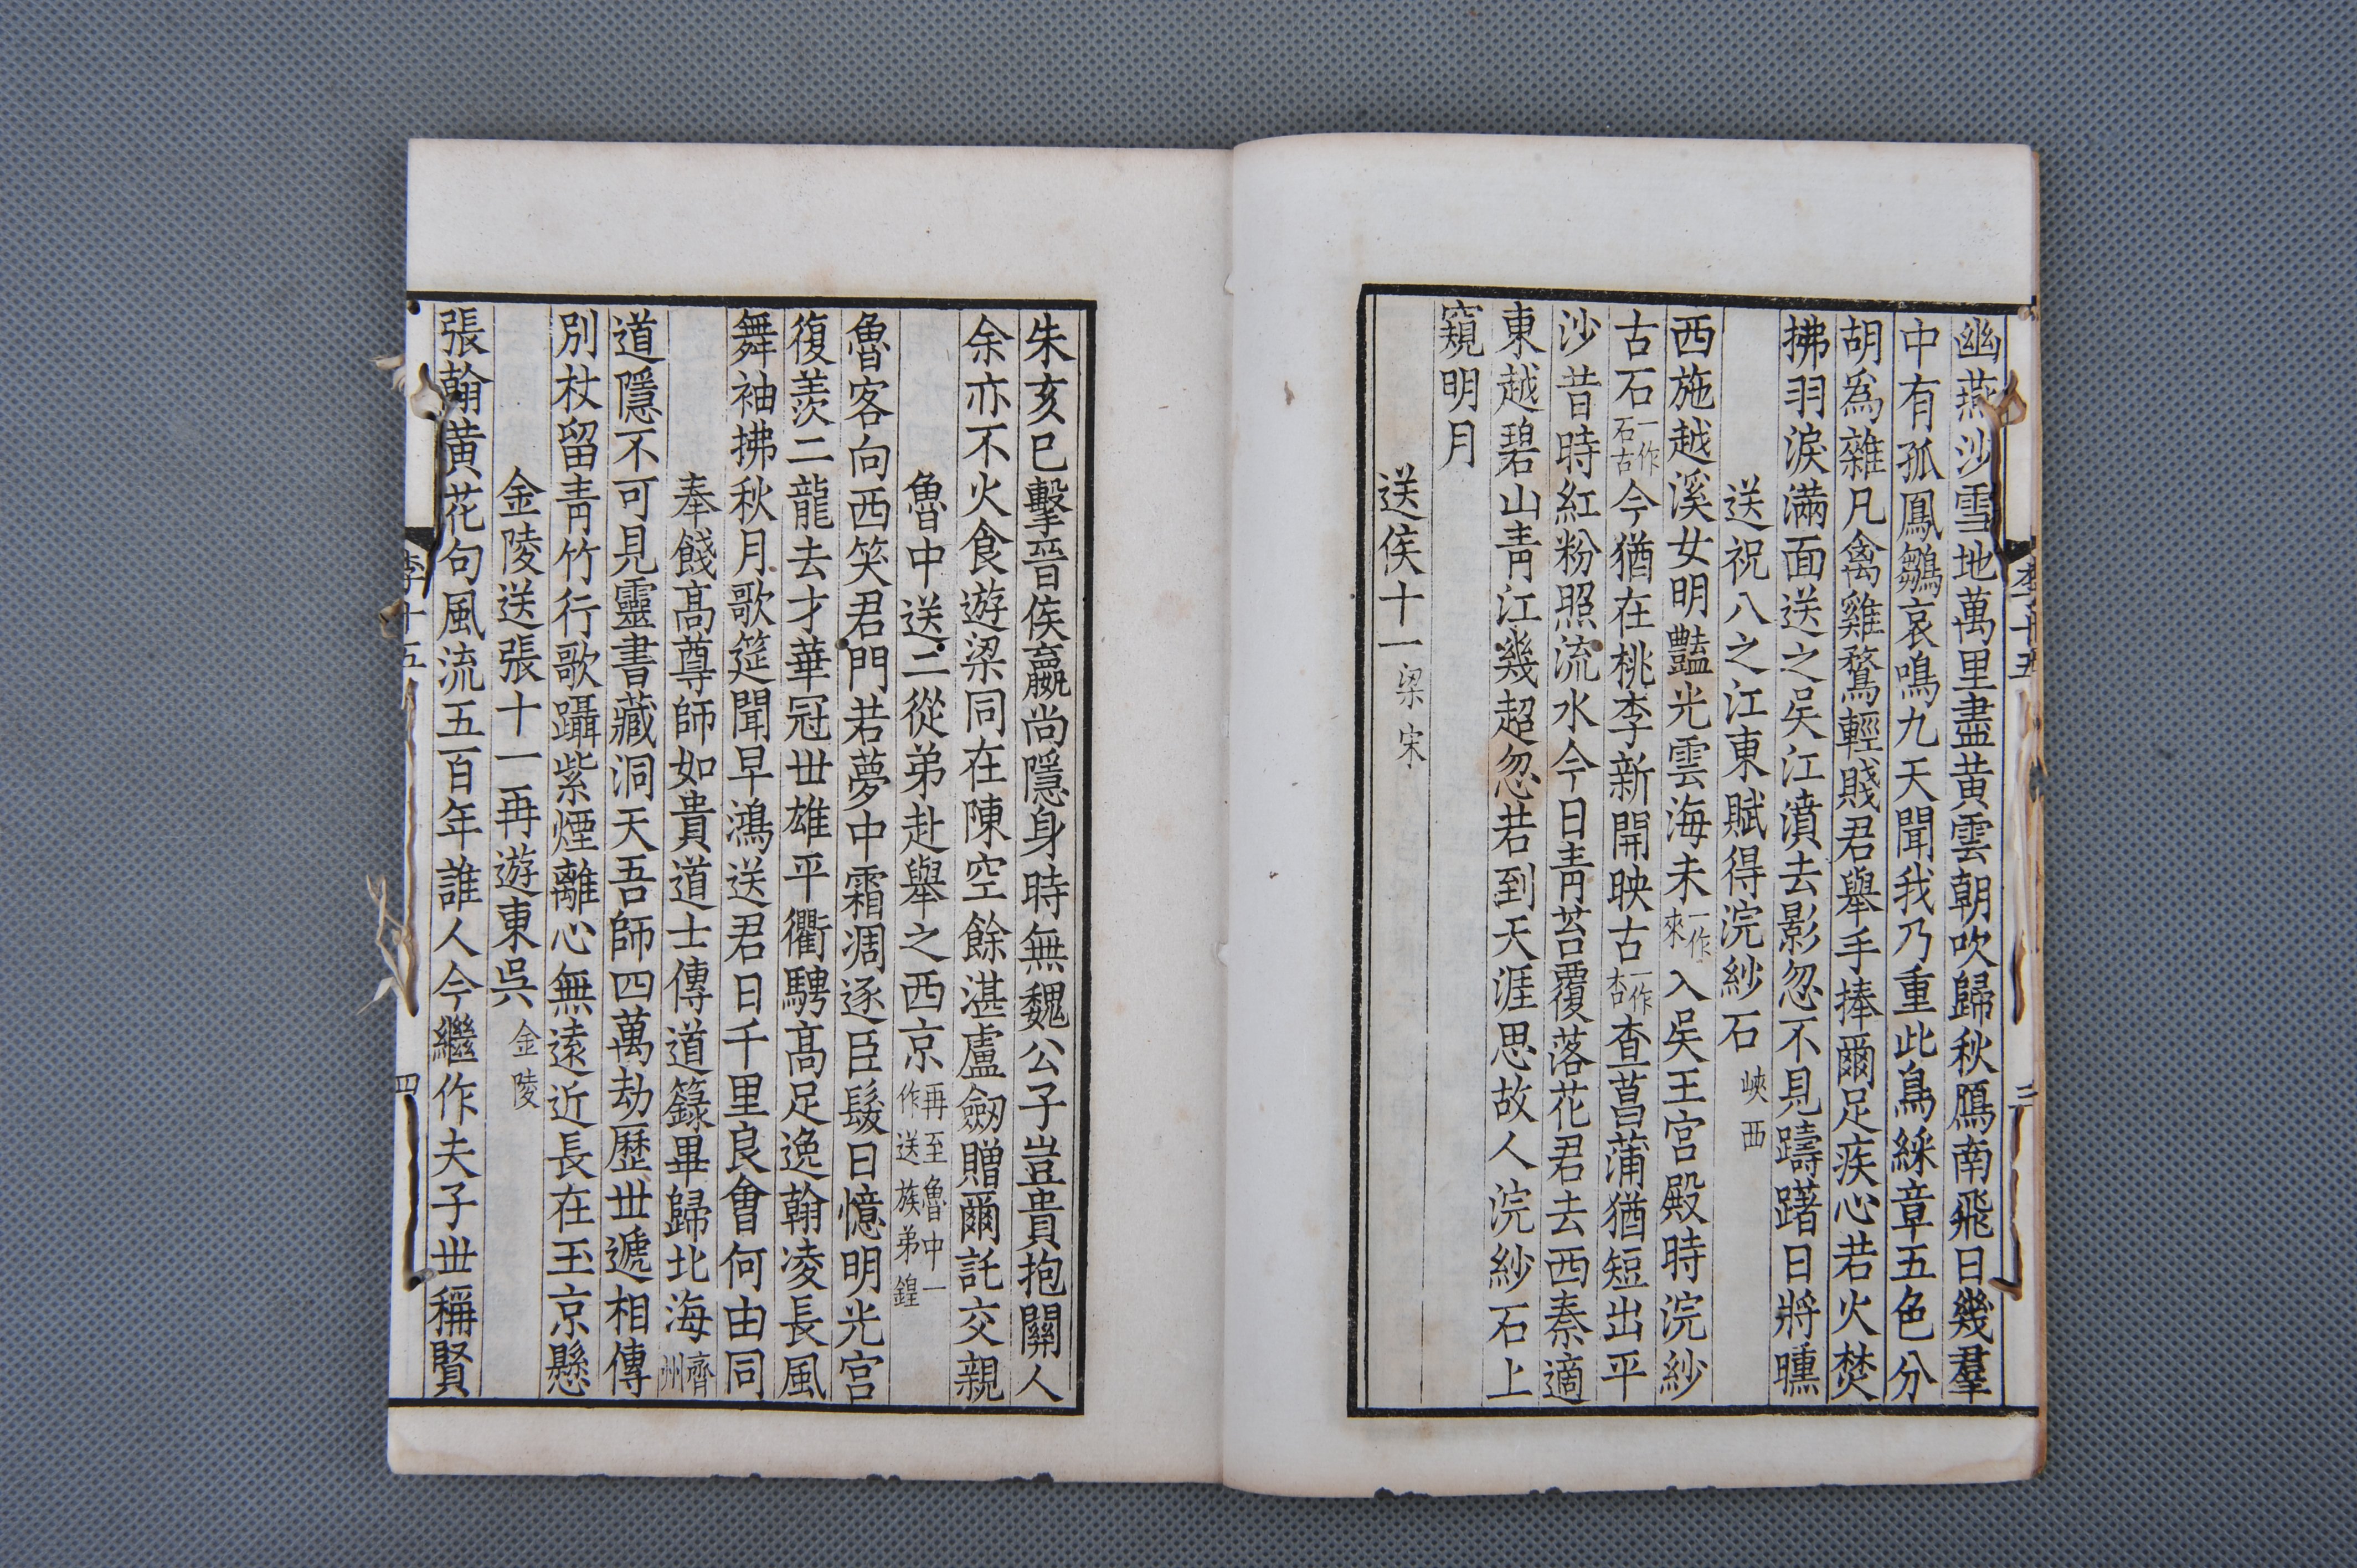 幽燕沙雪地萬里盡黃雲朝吹歸秋鴈南飛日幾羣
中有孤鳳鶵哀鳴九天聞我乃重此鳥綵章五色分
胡爲雜凡禽雞鶩輕賤君舉手捧爾足疾心若火焚
拂羽淚滿面送之吳江濆去影忽不見躊躇日將曛
送祝八之江東賦得浣紗石 峽西
西施越溪女明豔光雲海未一作來入吳王宮殿時浣紗
古石一作石古今猶在桃李新開映古一作杏查菖蒲猶短出平
沙昔時紅粉照流水今日青苔覆落花君去西秦適
東越碧山青江幾超忽若到天涯思故人浣紗石上
窺明月
送侯十一 梁宋
朱亥已擊晉侯嬴尚隱身時無魏公子豈貴抱關人
余亦不火食遊梁同在陳空餘湛盧劒贈爾託交親
魯中送二從弟赴舉之西京 再至魯中一作送族弟鍠
魯客向西笑君門若夢中霜凋逐臣髮日憶明光宮
復羨二龍去才華冠丗雄平衢騁高足逸翰凌長風
舞袖拂秋月歌筵聞早鴻送君日千里良會何由同
奉餞高尊師如貴道士傳道籙畢歸北海 齊州
道隱不可見靈書藏洞天吾師四萬劫歷丗遞相傳
別杖留青竹行歌躡紫煙離心無遠近長在玉京懸
金陵送張十一再遊東吳 金陵
張翰黃花句風流五百年誰人今繼作夫子丗稱賢
李十五
四